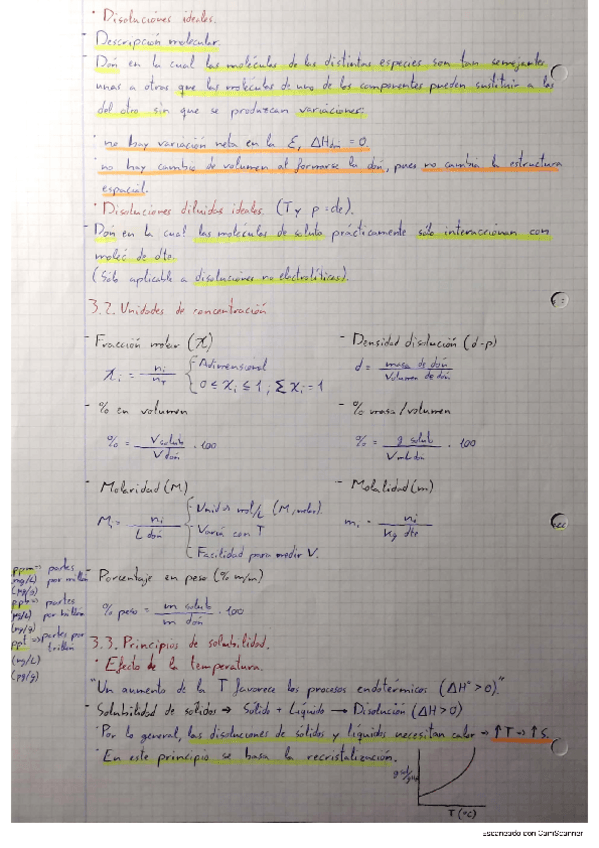 • Disoluciones ideales.
- Descripción molecular.
Don en la cual las moléculas de las distintas especies son tan semejantes
unas a otras que las moléculas de uno de los componentes pueden sustituir a las
del otro sin que se produzcan variaciones:
• no hay variación neta en la E, ΔHdon = 0
• no hay cambio de volumen al formarse la don, pues no cambia la estructura
espacial.
• Disoluciones diluidas ideales. (T y p = cte).
Don en la cual las moléculas de soluto prácticamente sólo interaccionan con
moléc de dte.
(Sólo aplicable a disoluciones no electrolíticas).
3.2. Unidades de concentración
- Fracción molar (χ)
χi = ni / nT { - Adimensional
0 ≤ χi ≤ 1 ; Σ χi = 1
- Densidad disolución (d - ρ)
d = masa de don / Volumen de don
- % en volumen
% = V soluto / V don · 100
- % masa/volumen
% = g solut / V ml don · 100
- Molaridad (M)
Mi = ni / L don
- Varía con T
- Facilidad para medir V.
- Molalidad (m)
mi = ni / Kg dte
ppm → partes
(mg/L) por millón
(μg/g)
ppb → partes
(μg/L) por billón
(ng/g)
ppt → partes por
trillón
(ng/L)
(pg/g)
- Porcentaje en peso (% m/m)
% peso = m solut / m don · 100
3.3. Principios de solubilidad.
• Efecto de la temperatura.
"Un aumento de la T favorece los procesos endotérmicos (ΔH° > 0)."
- Solubilidad de sólidos → Sólido + Líquido → Disolución (ΔH > 0)
• Por lo general, las disoluciones de sólidos y líquidos necesitan calor → ↑T → ↑S.
• En este principio se basa la recristalización.
T (°C)
Escaneado con CamScanner